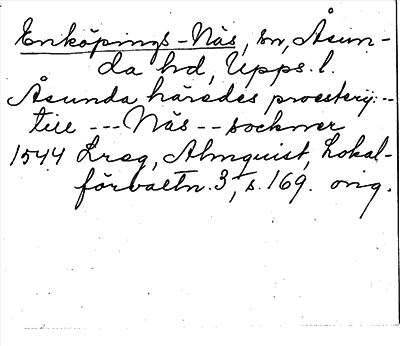 Enköpings-Näs, sn, Åsun-
da hd, Upps. l.
Åsunda härades proesterij --
till --- Näs -- sockner
1544 Lreg, Almquist, Lokal-
förvaltn. 3, s. 169. orig.